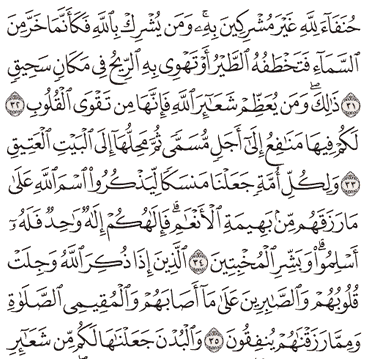 حُنَفَآءَ لِلَّهِ غَيْرَ مُشْرِكِينَ بِهِۦۚ وَمَن يُشْرِكْ بِٱللَّهِ فَكَأَنَّمَا خَرَّ مِنَ
ٱلسَّمَآءِ فَتَخْطَفُهُ ٱلطَّيْرُ أَوْ تَهْوِي بِهِ ٱلرِّيحُ فِي مَكَانٍ سَحِيقٍ
٣١ ذَٰلِكَۖ وَمَن يُعَظِّمْ شَعَٰٓئِرَ ٱللَّهِ فَإِنَّهَا مِن تَقْوَى ٱلْقُلُوبِ ٣٢
لَكُمْ فِيهَا مَنَٰفِعُ إِلَىٰٓ أَجَلٍ مُّسَمًّى ثُمَّ مَحِلُّهَآ إِلَى ٱلْبَيْتِ ٱلْعَتِيقِ
٣٣ وَلِكُلِّ أُمَّةٍ جَعَلْنَا مَنسَكًا لِّيَذْكُرُواْ ٱسْمَ ٱللَّهِ عَلَىٰ
مَا رَزَقَهُم مِّنۢ بَهِيمَةِ ٱلْأَنْعَٰمِۗ فَإِلَٰهُكُمْ إِلَٰهٌ وَٰحِدٌ فَلَهُۥٓ
أَسْلِمُواْۗ وَبَشِّرِ ٱلْمُخْبِتِينَ ٣٤ ٱلَّذِينَ إِذَا ذُكِرَ ٱللَّهُ وَجِلَتْ
قُلُوبُهُمْ وَٱلصَّٰبِرِينَ عَلَىٰ مَآ أَصَابَهُمْ وَٱلْمُقِيمِي ٱلصَّلَوٰةِ
وَمِمَّا رَزَقْنَٰهُمْ يُنفِقُونَ ٣٥ وَٱلْبُدْنَ جَعَلْنَٰهَا لَكُم مِّن شَعَٰٓئِرِ